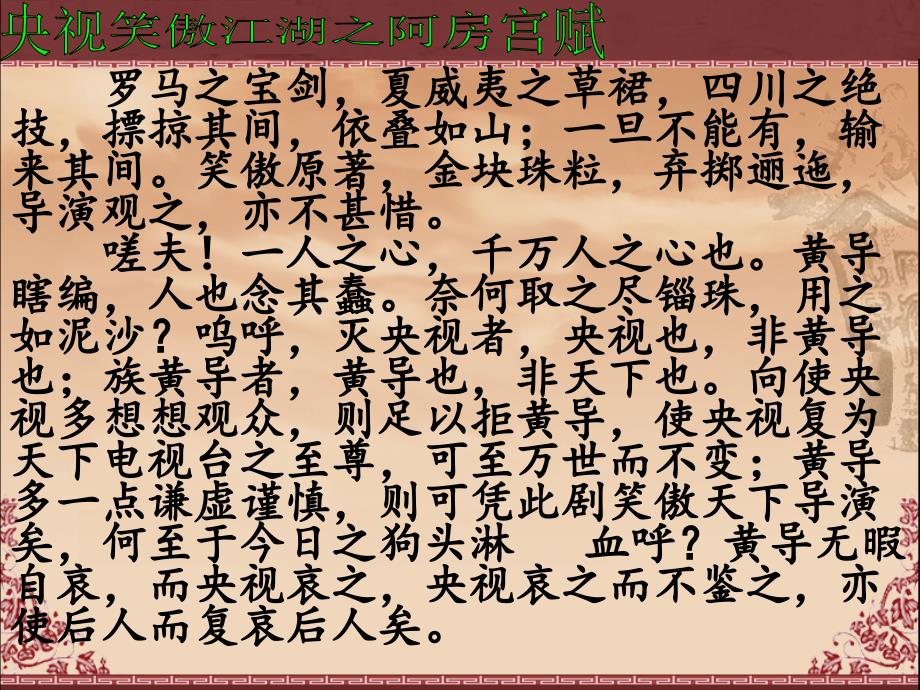 央视笑傲江湖之阿房宫赋
罗马之宝剑，夏威夷之草裙，四川之绝
技，摽掠其间，依叠如山；一旦不能有，输
来其间。笑傲原著，金块珠粒，弃掷逦迤，
导演观之，亦不甚惜。
嗟夫！一人之心，千万人之心也。黄导
瞎编，人也念其蠢。奈何取之尽锱珠，用之
如泥沙？呜呼，灭央视者，央视也，非黄导
也；族黄导者，黄导也，非天下也。向使央
视多想想观众，则足以拒黄导，使央视复为
天下电视台之至尊，可至万世而不变；黄导
多一点谦虚谨慎，则可凭此剧笑傲天下导演
矣，何至于今日之狗头淋 血呼？黄导无暇
自哀，而央视哀之，央视哀之而不鉴之，亦
使后人而复哀后人矣。